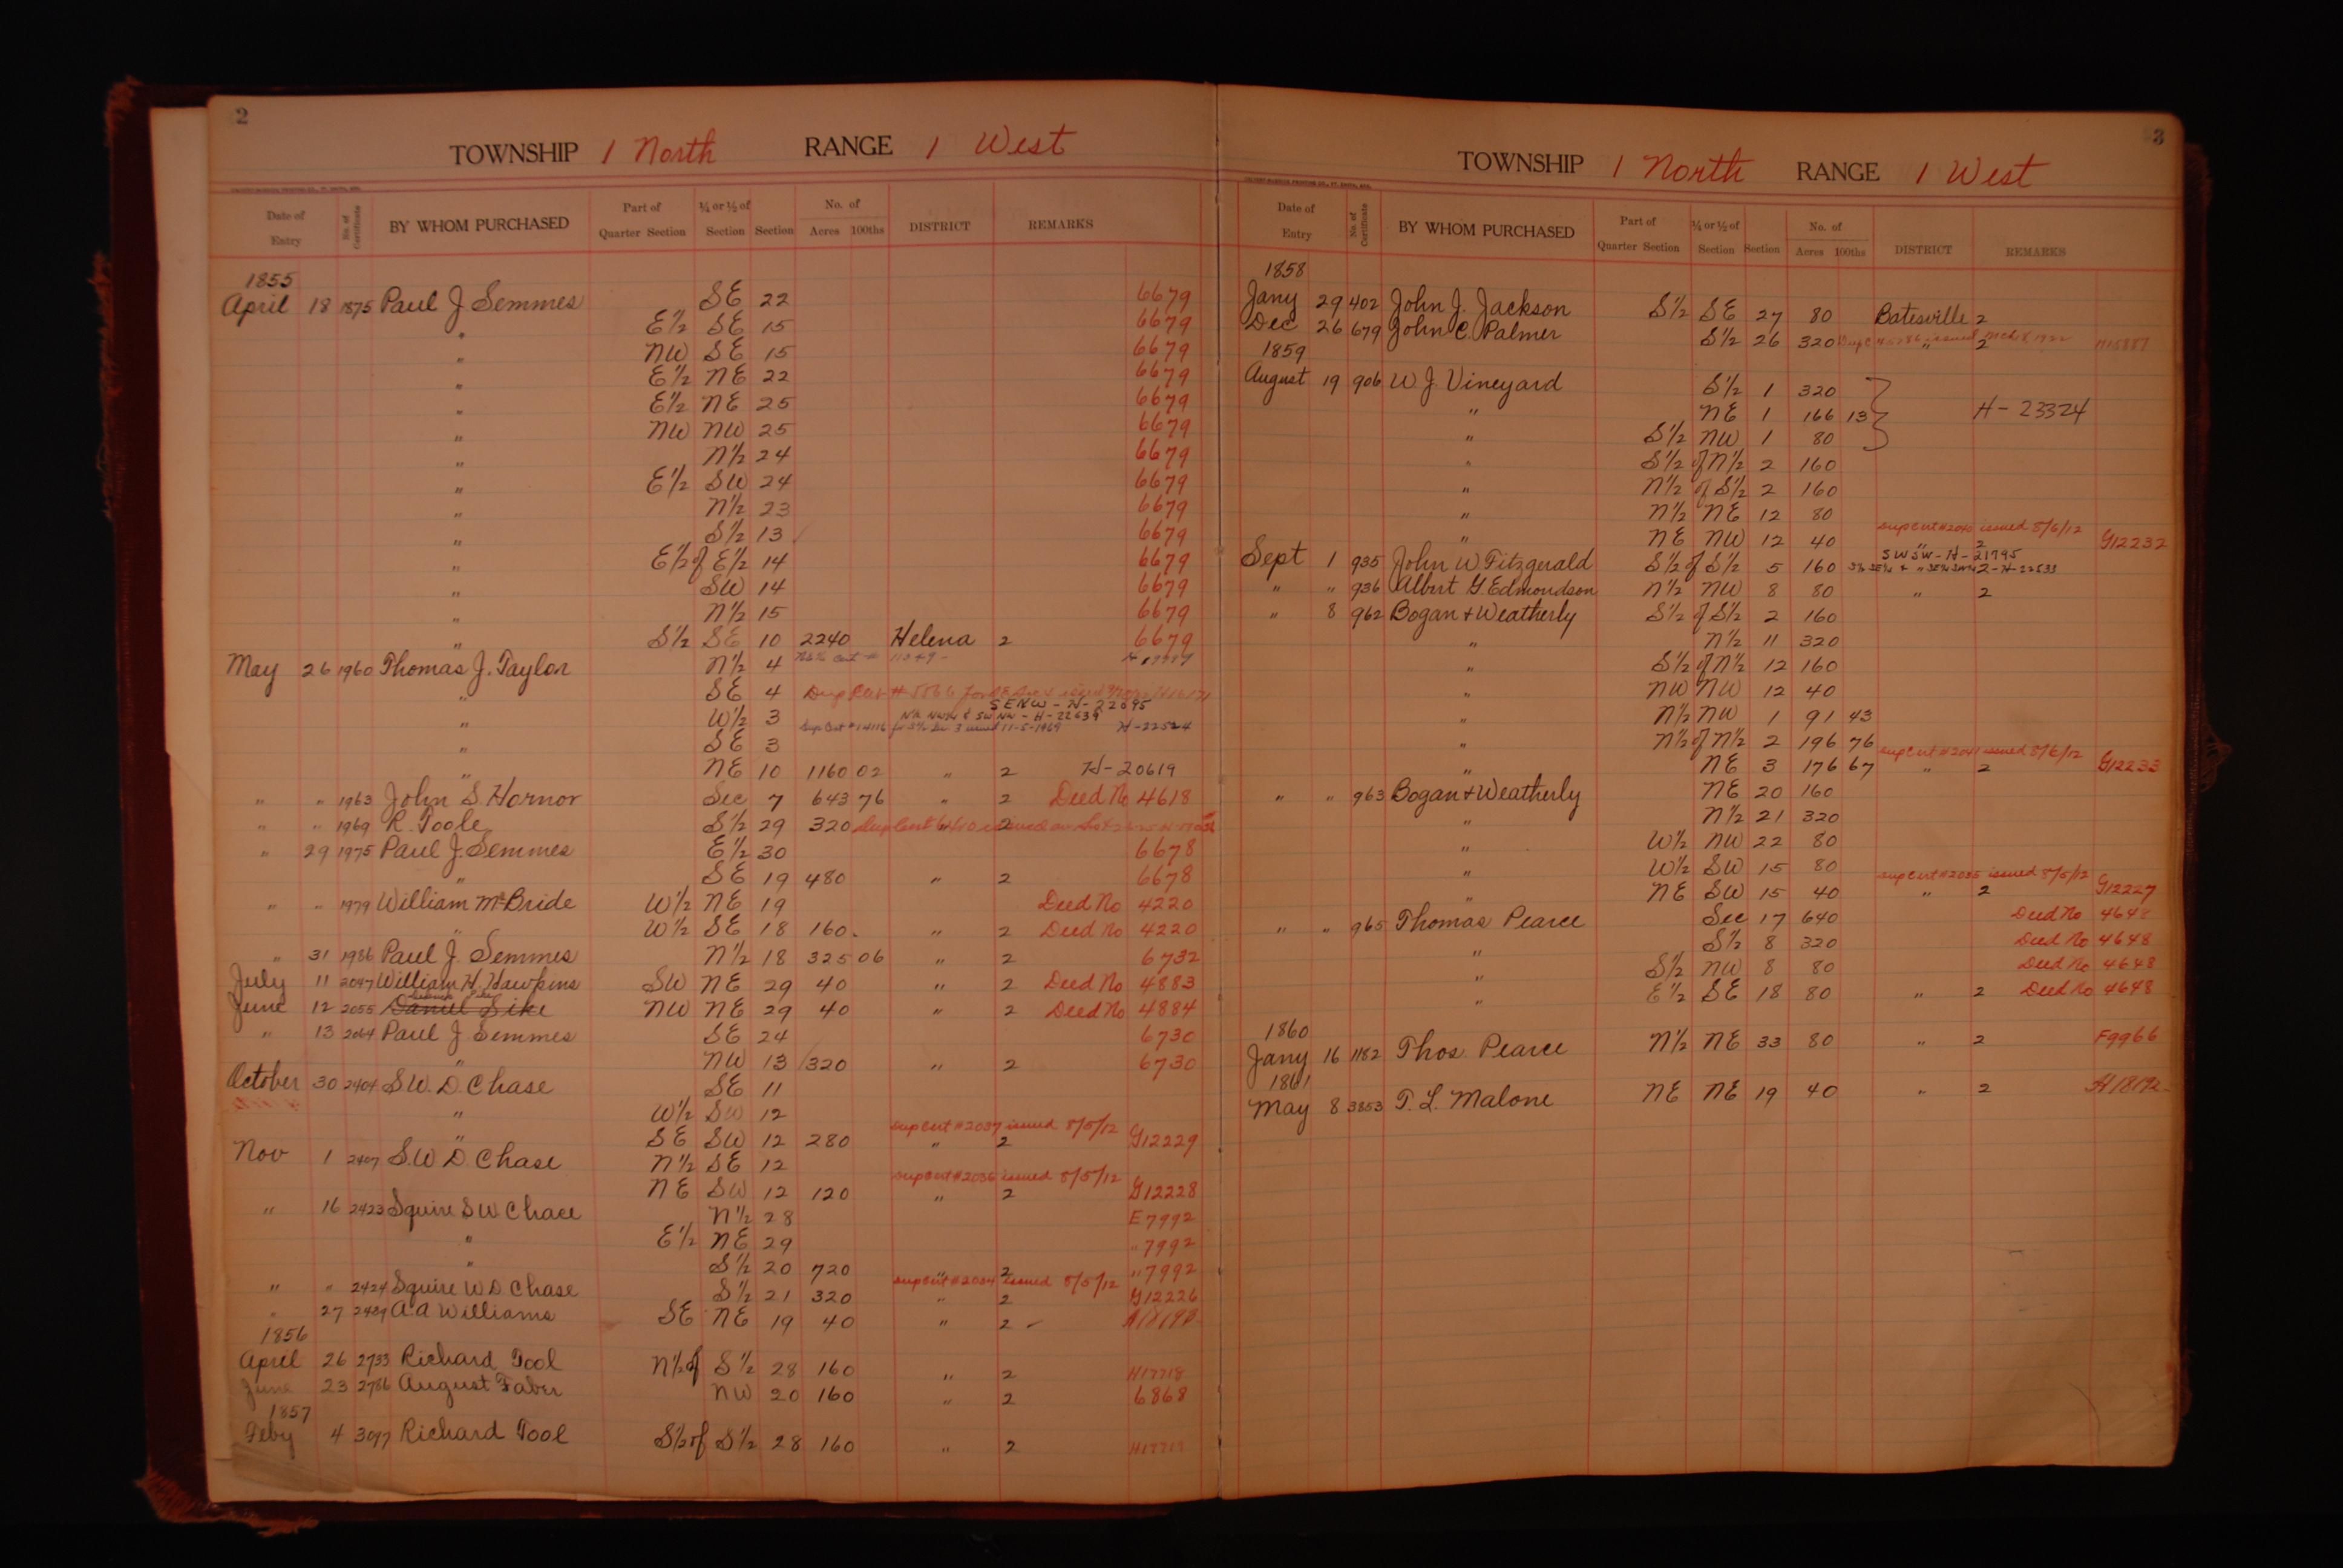 2
TOWNSHIP 1 North RANGE 1 West
Date of Entry No. of Certificate BY WHOM PURCHASED Part of Quarter Section ¼ or ½ of Section Section No. of Acres 100ths DISTRICT REMARKS
1855
April 18 1875 Paul J Semmes SE 22 6679
" E½ SE 15 6679
" NW SE 15 6679
" E½ NE 22 6679
" E½ NE 25 6679
" NW NW 25 6679
" N½ 24 6679
" E½ SW 24 6679
" N½ 23 6679
" S½ 13 6679
" E½ of E½ 14 6679
" SW 14 6679
" N½ 15 6679
" S½ SE 10 2240 Helena 2 6679
May 26 1960 Thomas J. Taylor N½ 4
" SE 4 Dup Cert
SENW - H - 22095
" W½ 3 NW & SW NW - H - 22639
Dup Cert # 14116 for S½ Sec 3 issued 11-5-1969 H-22524
" SE 3
" NE 10 1160 02 " 2 H-20619
" " 1963 John S. Hornor Sec 7 643 76 " 2 Deed No 4618
" " 1969 R. Toole S½ 29 320 Dup Cert issued on 2
" 29 1975 Paul J. Semmes E½ 30 6678
" SE 19 480 " 2 6678
" " 1979 William McBride W½ NE 19 Deed No 4220
" W½ SE 18 160. " 2 Deed No 4220
" 31 1986 Paul J. Semmes N½ 18 325 06 " 2 6732
July 11 2047 William H. Hawkins SW NE 29 40 " 2 Deed No 4883
June 12 2055 Daniel Fike NW NE 29 40 " 2 Deed No 4884
" 13 2064 Paul J Semmes SE 24 6730
" NW 13 320 " 2 6730
October 30 2404 S.W. D. Chase SE 11
" W½ SW 12
Dup Cert # 2037 issued 8/5/12
" SE SW 12 280 " 2 G12229
Nov 1 2407 S.W D. Chase N½ SE 12
Dup Cert # 2036 issued 8/5/12
NE SW 12 120 " 2 G12228
" 16 2423 Squire S W. Chace N½ 28 E7992
" E½ NE 29 " 7992
" S½ 20 720 " 2 " 7992
Dup Cert # 2034 issued 8/5/12
" " 2424 Squire W D Chase S½ 21 320 " 2 G12226
" 27 2489 A A Williams SE NE 19 40 " 2
1856
April 26 2733 Richard Tool N½ of S½ 28 160 " 2 H17718
June 23 2786 August Faber NW 20 160 " 2 6868
1857
Feby 4 3097 Richard Tool S½ of S½ 28 160 " 2
3
TOWNSHIP 1 North RANGE 1 West
Date of Entry No. of Certificate BY WHOM PURCHASED Part of Quarter Section ¼ or ½ of Section Section No. of Acres 100ths DISTRICT REMARKS
1858
Jany 29 402 John J. Jackson S½ SE 27 80 Batesville 2
Dec 26 679 John C. Palmer S½ 26 320 issued " 2
1859
August 19 906 W. J. Vineyard S½ 1 320
" NE 1 166 13 H-23324
" S½ NW 1 80
" S½ of N½ 2 160
" N½ of S½ 2 160
" N½ NE 12 80
Dup Cert # 2040 issued 8/6/12
" NE NW 12 40 " 2 G12232
SWSW - H - 21995
Sept 1 935 John W Fitzgerald S½ of S½ 5 160 2 - H-22533
" " 936 Albert G Edmondson N½ NW 8 80 " 2
" 8 962 Bogan + Weatherly S½ of S½ 2 160
" N½ 11 320
" S½ of N½ 12 160
" NW NW 12 40
" N½ NW 1 91 43
" N½ of N½ 2 196 76
Dup Cert # 2041 issued 8/6/12
" NE 3 176 67 " 2 G12233
" " 963 Bogan + Weatherly NE 20 160
" N½ 21 320
" W½ NW 22 80
" W½ SW 15 80
Dup Cert # 2035 issued 8/5/12
" NE SW 15 40 " 2 G12227
" " 965 Thomas Pearce Sec 17 640 Deed No 4648
" S½ 8 320 Deed No 4648
" S½ NW 8 80 Deed No 4648
" E½ SE 18 80 " 2 Deed No 4648
1860
Jany 16 1182 Thos. Pearce N½ NE 33 80 " 2 F9966
1861
May 8 3853 T. L. Malone NE NE 19 40 " 2 H18192